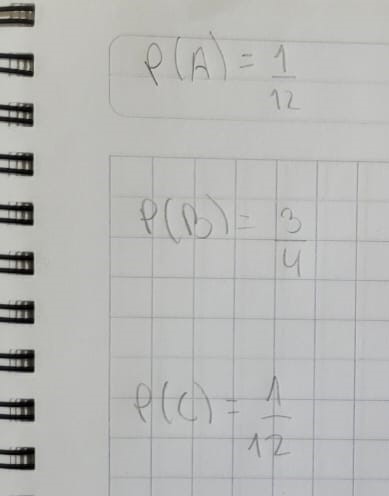 P(A) = 1/12
P(B) = 3/4
P(C) = 1/12